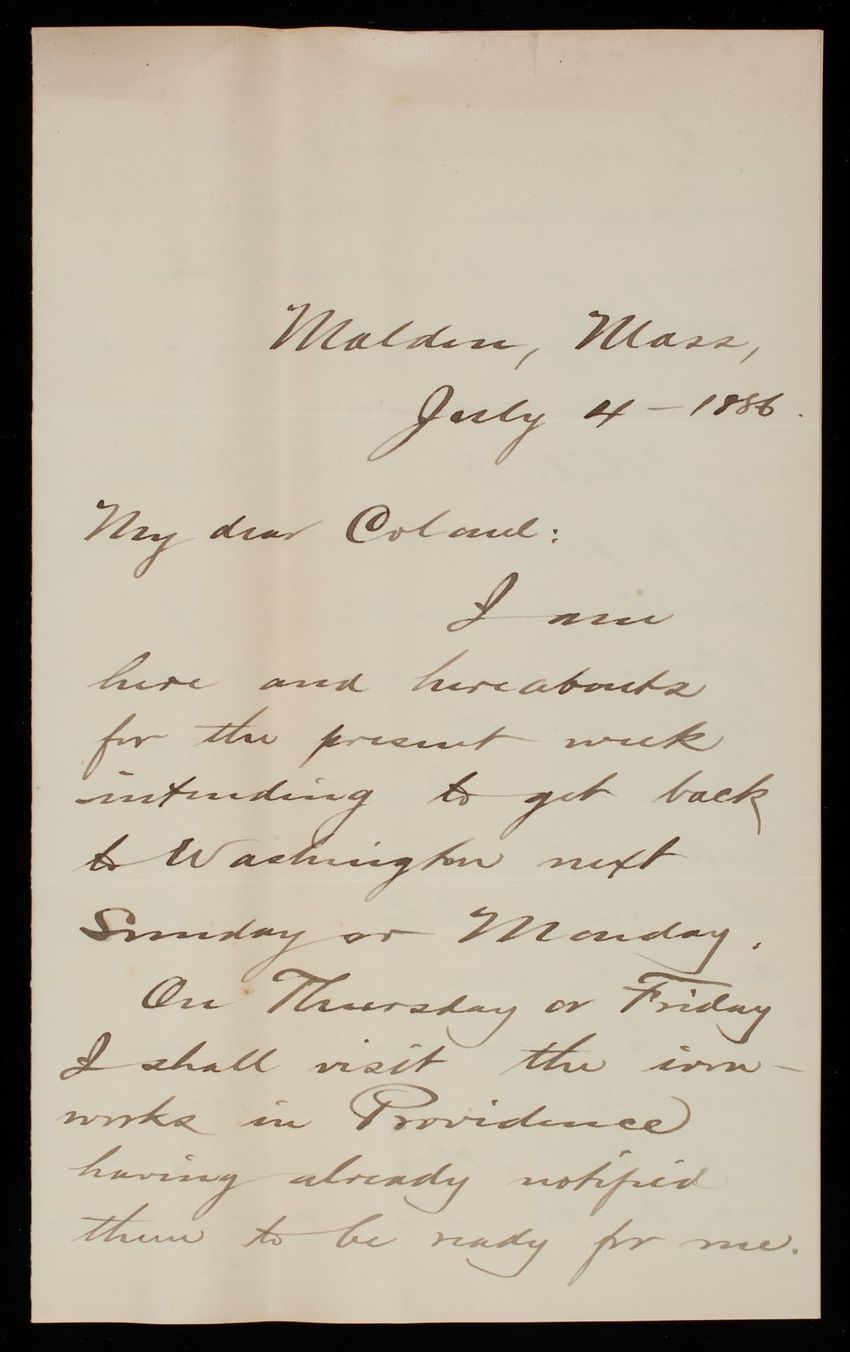 Malden, Mass,
July 4 - 1886.
My dear Colonel:
I am
here and hereabouts
for the present week
intending to get back
to Washington next
Sunday or Monday.
On Thursday or Friday
I shall visit the iron-
works in Providence
having already notified
them to be ready for me.